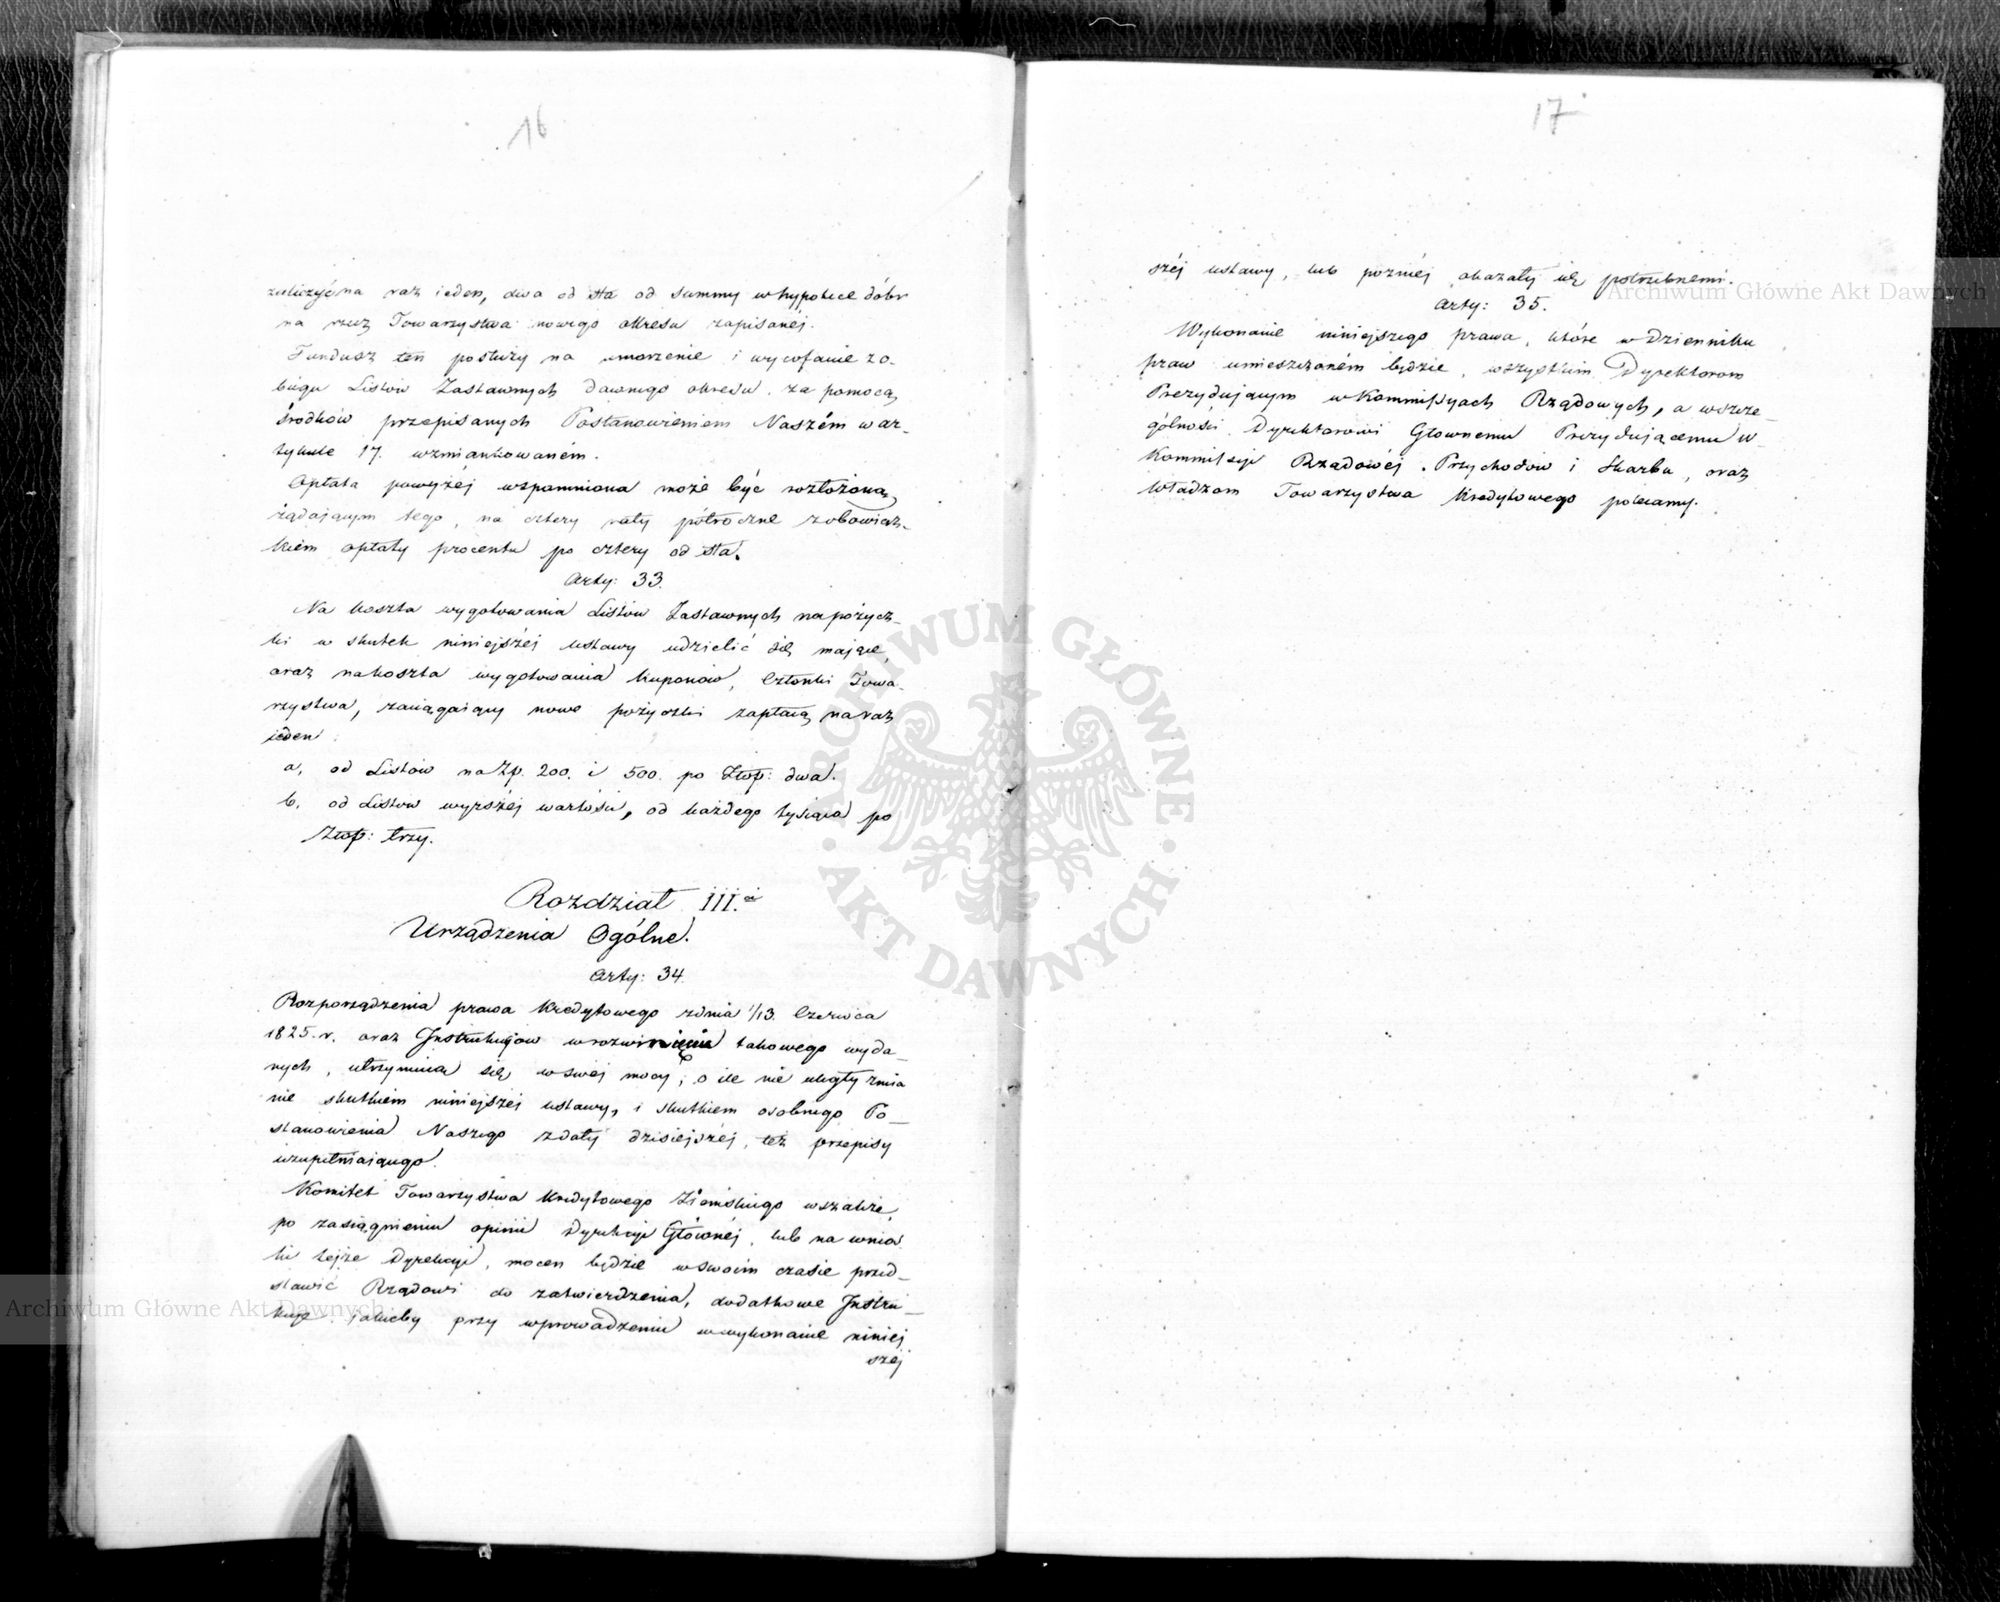 16
zaliczyć na raz ieden, dwa od sta od summy w hypotece dóbr
na rzecz Towarzystwa nowego okresu zapisanéj.
Fundusz ten posłuży na umorzenie i wycofanie z o-
biegu Listów Zastawnych dawnego okresu, za pomocą
środków przepisanych Postanowieniem Naszém w ar-
tykule 17. wzmiankowaném.
Opłata powyżéj wspomniona może być rozłożoną,
żądającym tego, na cztery raty półroczne z obowiąz-
kiem opłaty procentu po cztery od sta.
Arty: 33.
Na koszta wygotowania Listów Zastawnych na pożycz-
ki w skutek niniejszéj ustawy udzielić się mające,
oraz na koszta wygotowania kuponów, Członki Towa-
rzystwa, zaciągaiący nowe pożyczki zapłacą na raz
ieden:
a, od Listów na Zp. 200. i 500. po Złop: dwa.
b. od Listów wyższéj wartości, od każdego tysiąca po
Złop: trzy.
Rozdział III.ci
Urządzenia Ogólne.
Arty: 34.
Rozporządzenia prawa Kredytowego z dnia 1/13. Czerwca
1825. r. oraz Instrukcyow w rozwinięciu takowego wyda-
nych, utrzymuia się w swéj mocy, o ile nie uległy zmia
nie skutkiem niniejszéj ustawy, i skutkiem osobnego Po-
stanowienia Naszego z daty dzisiejszéj, też przepisy
uzupełniaiącego.
Komitet Towarzystwa Kredytowego Ziemskiego wszakże,
po zasiągnieniu opinii Dyrekcyi Głównéj, lub na wnio
ki tejże Dyrekcyi, mocen będzie w swoim czasie przed-
stawić Rządowi do zatwierdzenia, dodatkowe Instru-
kcye jakieby przy wprowadzeniu w wykonanie niniej
széj
17
széj ustawy, lub pozniéj okazały się potrzebnemi.
Arty: 35.
Wykonanie niniejszego prawa, które w Dzienniku
praw umieszczoném będzie, wszystkim Dyrektorom
Prezyduiącym w Kommissyach Rządowych, a w szcze-
gólności Dyrektorowi Głownemu Prezyduiącemu w
Kommissyi Rządowéj Przychodów i Skarbu, oraz
Władzom Towarzystwa Kredytowego polecamy.
Archiwum Główne Akt Dawnych
Archiwum Główne Akt Dawnych
ARCHIWUM GŁÓWNE
AKT DAWNYCH